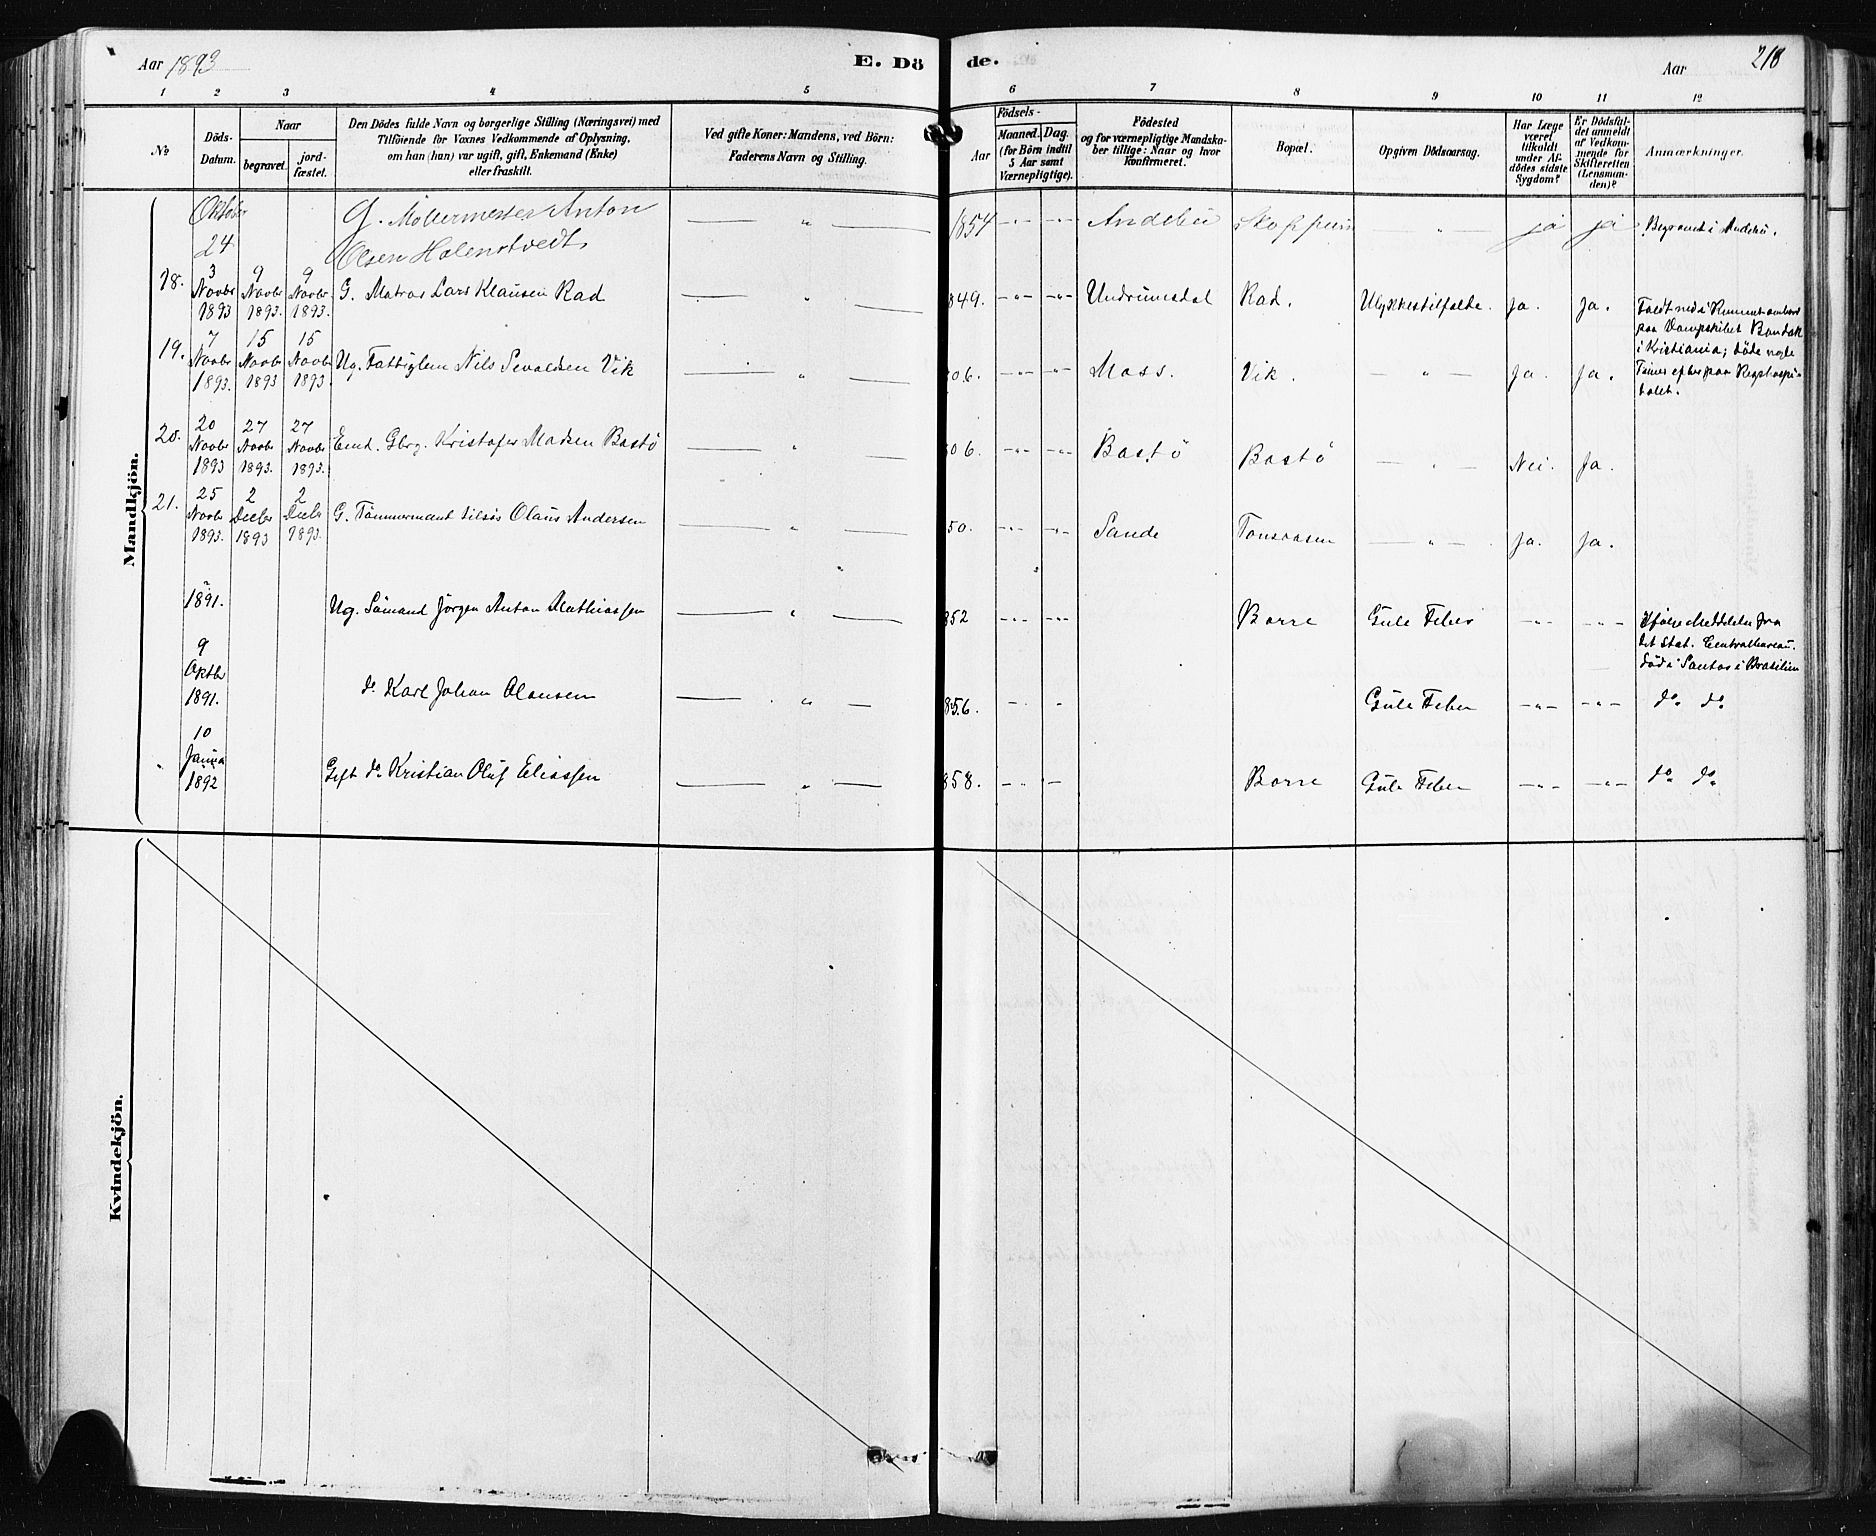 Aar 1893
E. Dö
de.
Aar
218
1 2 3 4 5 6 7 8 9 10 11 12
No
Döds-
Datum.
Naar
begravet.
jord-
fæstet.
Den Dödes fulde Navn og borgerlige Stilling (Næringsvei) med
Tilföiende for Voxnes Vedkommende af Oplysning,
om han (hun) var ugift, gift, Enkemand (Enke)
eller fraskilt.
Ved gifte Koner: Mandens, ved Börn:
Faderens Navn og Stilling.
Födsels-
Aar
Maaned.
Dag.
(for Börn indtil
5 Aar samt
Værnepligtige).
Födested
og for værnepligtige Mandska-
ber tillige: Naar og hvor
konfirmeret.
Bopæl.
Opgiven Dödsaarsag.
Har Læge
været
tilkaldt
under Af-
dödes sidste
Sygdom?
Er Dödsfal-
det anmeldt
af Vedkom-
mende for
Skifteretten
(Lensman-
den)?
Anmærkninger.
Mandkjön.
Oktober
24
G. Möllermester Anton
Olsen Holenstvedt
— " —
1854 -"- -"- Andebu Skoppum — " — ja ja Begravet i Andebu.
18. 3 Novbr 1893 9 Novbr 1893. 9 Novbr 1893. G. Matros Lars Klausen Rad — " — 849. -"- -"- Undrumsdal Rad. Ulykkestilfælde. Ja. Ja.
Faldt ned i Rummet ombord
paa Dampskibet Bandak
i Kristiania; döde nogle
Timer efter paa Rigshospi-
talet.
19. 7 Novbr 1893. 15 Novbr 1893 15 Novbr 1893. Ug. Fattiglem Nils Sevaldsen Vik — " — 806. -"- -"- Moss. Vik. — " — Ja. Ja.
20. 20 Novbr 1893 27 Novbr 1893. 27 Novbr 1893. Enkd. Gbrg. Kristofer Madsen Bastö — " — 806. -"- -"- Bastö Bastö — " — Nei. Ja.
21. 25 Novbr 1893. 2 Decbr 1893 2 Decbr 1893. G. Tömmermand Olaus Andersen — " — 50. -"- -"- Sande — " — Ja. Ja.
" 1891. Ug. Sömand Jörgen Anton Mathiassen — " — 852 -"- -"- Borre Gule Feber -"- -"-
Ifölge Meddelelse fra
det Stat. Centralbureau.
död i Santos i Brasilien
9 Oktbr 1891. do Karl Johan Olausen — " — 856. - - Gule Feber -"- -"- do do
" 10 Janua 1892 Gift do Kristian Oluf Eliassen — " — 858. -"- — Borre Gule Feber -"- -"- do do
Kvindekjön.